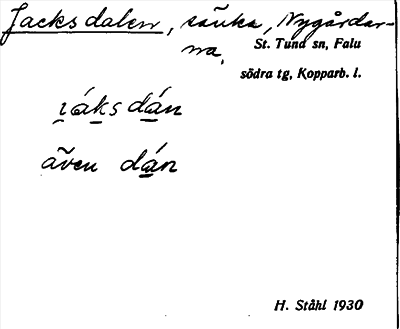 Jacksdalen, sänka, Nygårdar-
na,
St. Tuna sn, Falu
södra tg, Kopparb. l.
i̯áksdán
även dán
H. Ståhl 1930